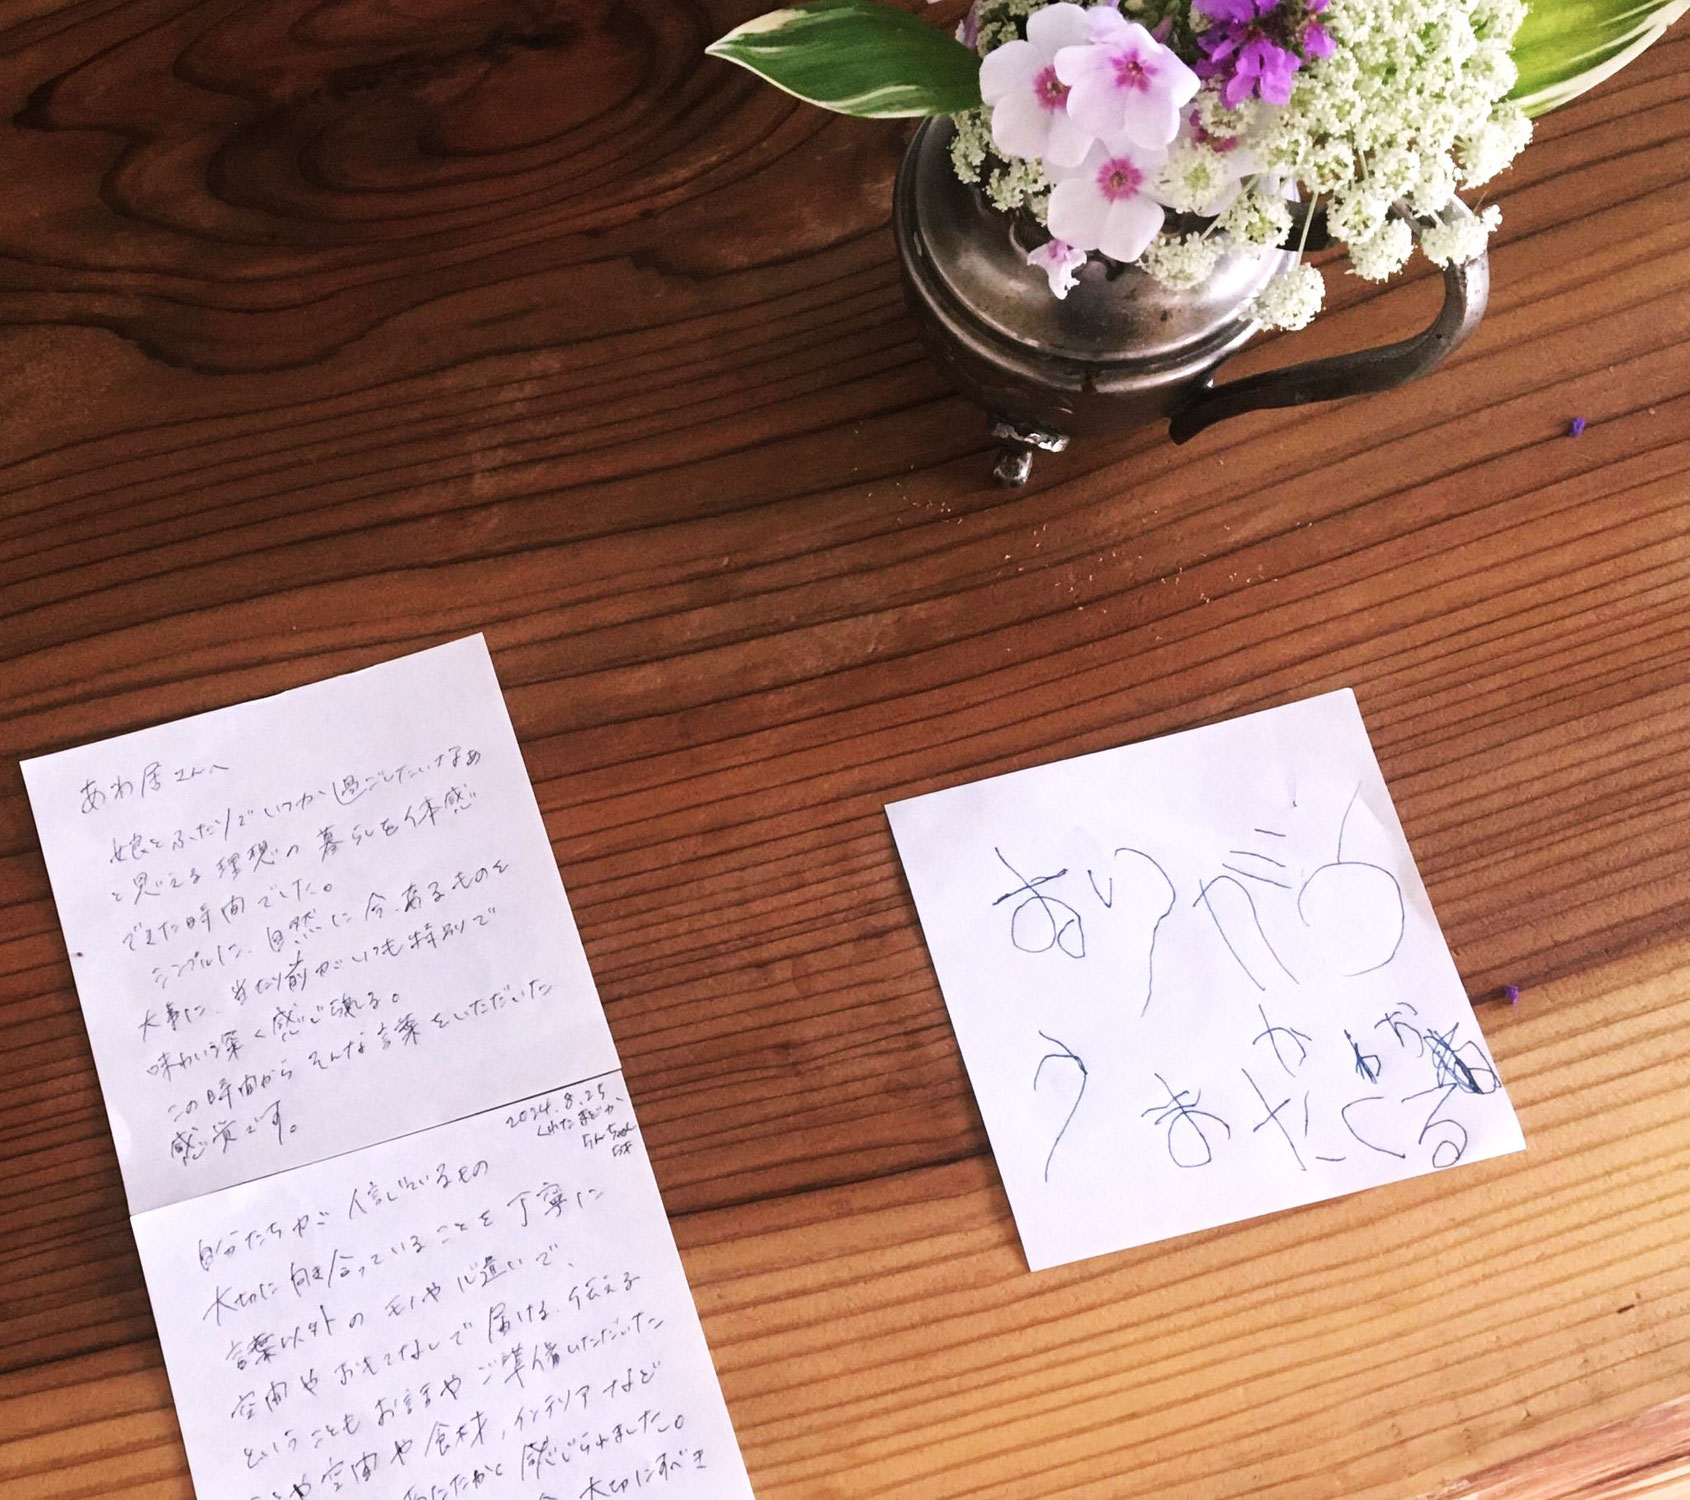 あわ居さんへ
娘とふたりでいつか過ごしたいなあ
と思える理想の暮らしを体感
できた時間でした。
シンプルに、自然に今、あるものを
大事に、当たり前がいつも特別で
味わい深く感じ
この時間からそんな言葉をいただいた
感覚です。
2024.8.25
自分たちが信じているもの
大切に向き合っていることを丁寧に
言葉以外のモノや心遣いで、
空間やおもてなしで届ける、伝える
ということもお話やご準備いただいた
や空間や食材、インテリアなど
あたたかく感じられました。
大切にすべき
ありがとう
またくる